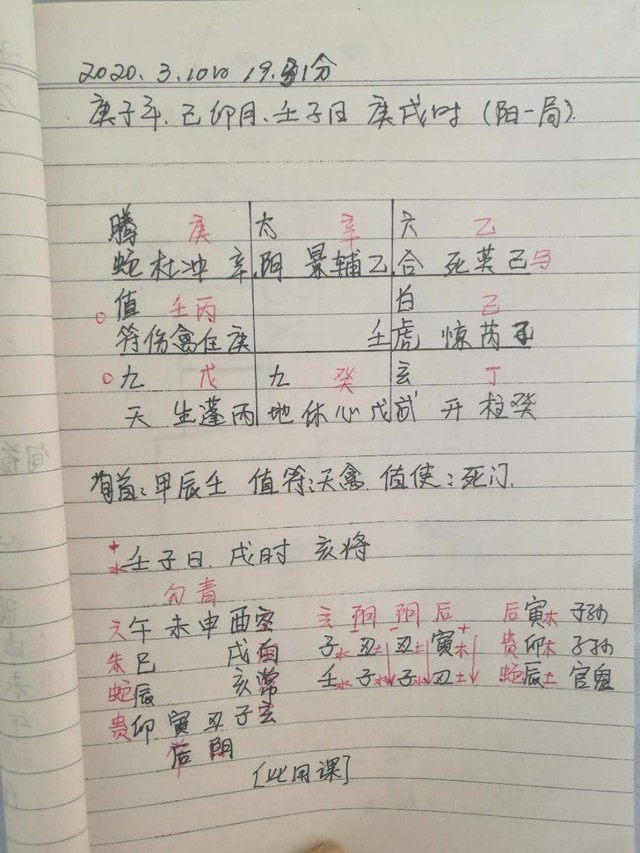 2020.3.10日 19.31分
庚子年.己卯月.壬子日 庚戌时（阳一局）.
腾 庚 太 辛 六 乙
蛇杜冲辛 阴景辅乙 合死英己马
○值 壬丙 白 己
符伤禽任庚 壬虎惊芮
○九 戊 九 癸 玄 丁
天生蓬丙 地休心戊 武开柱癸
旬首:甲辰壬 值符:天禽. 值使:死门.
+
水壬子日.戌时 亥将
勾青
六午未申酉空 玄阴阴后 后寅木 子孙
朱巳 戌白 子水丑土丑土寅木 贵卯木 子孙
蛇辰 亥常 壬水子水子水丑土 蛇辰土 官鬼
贵卯寅丑子玄
后阴
[此用课]